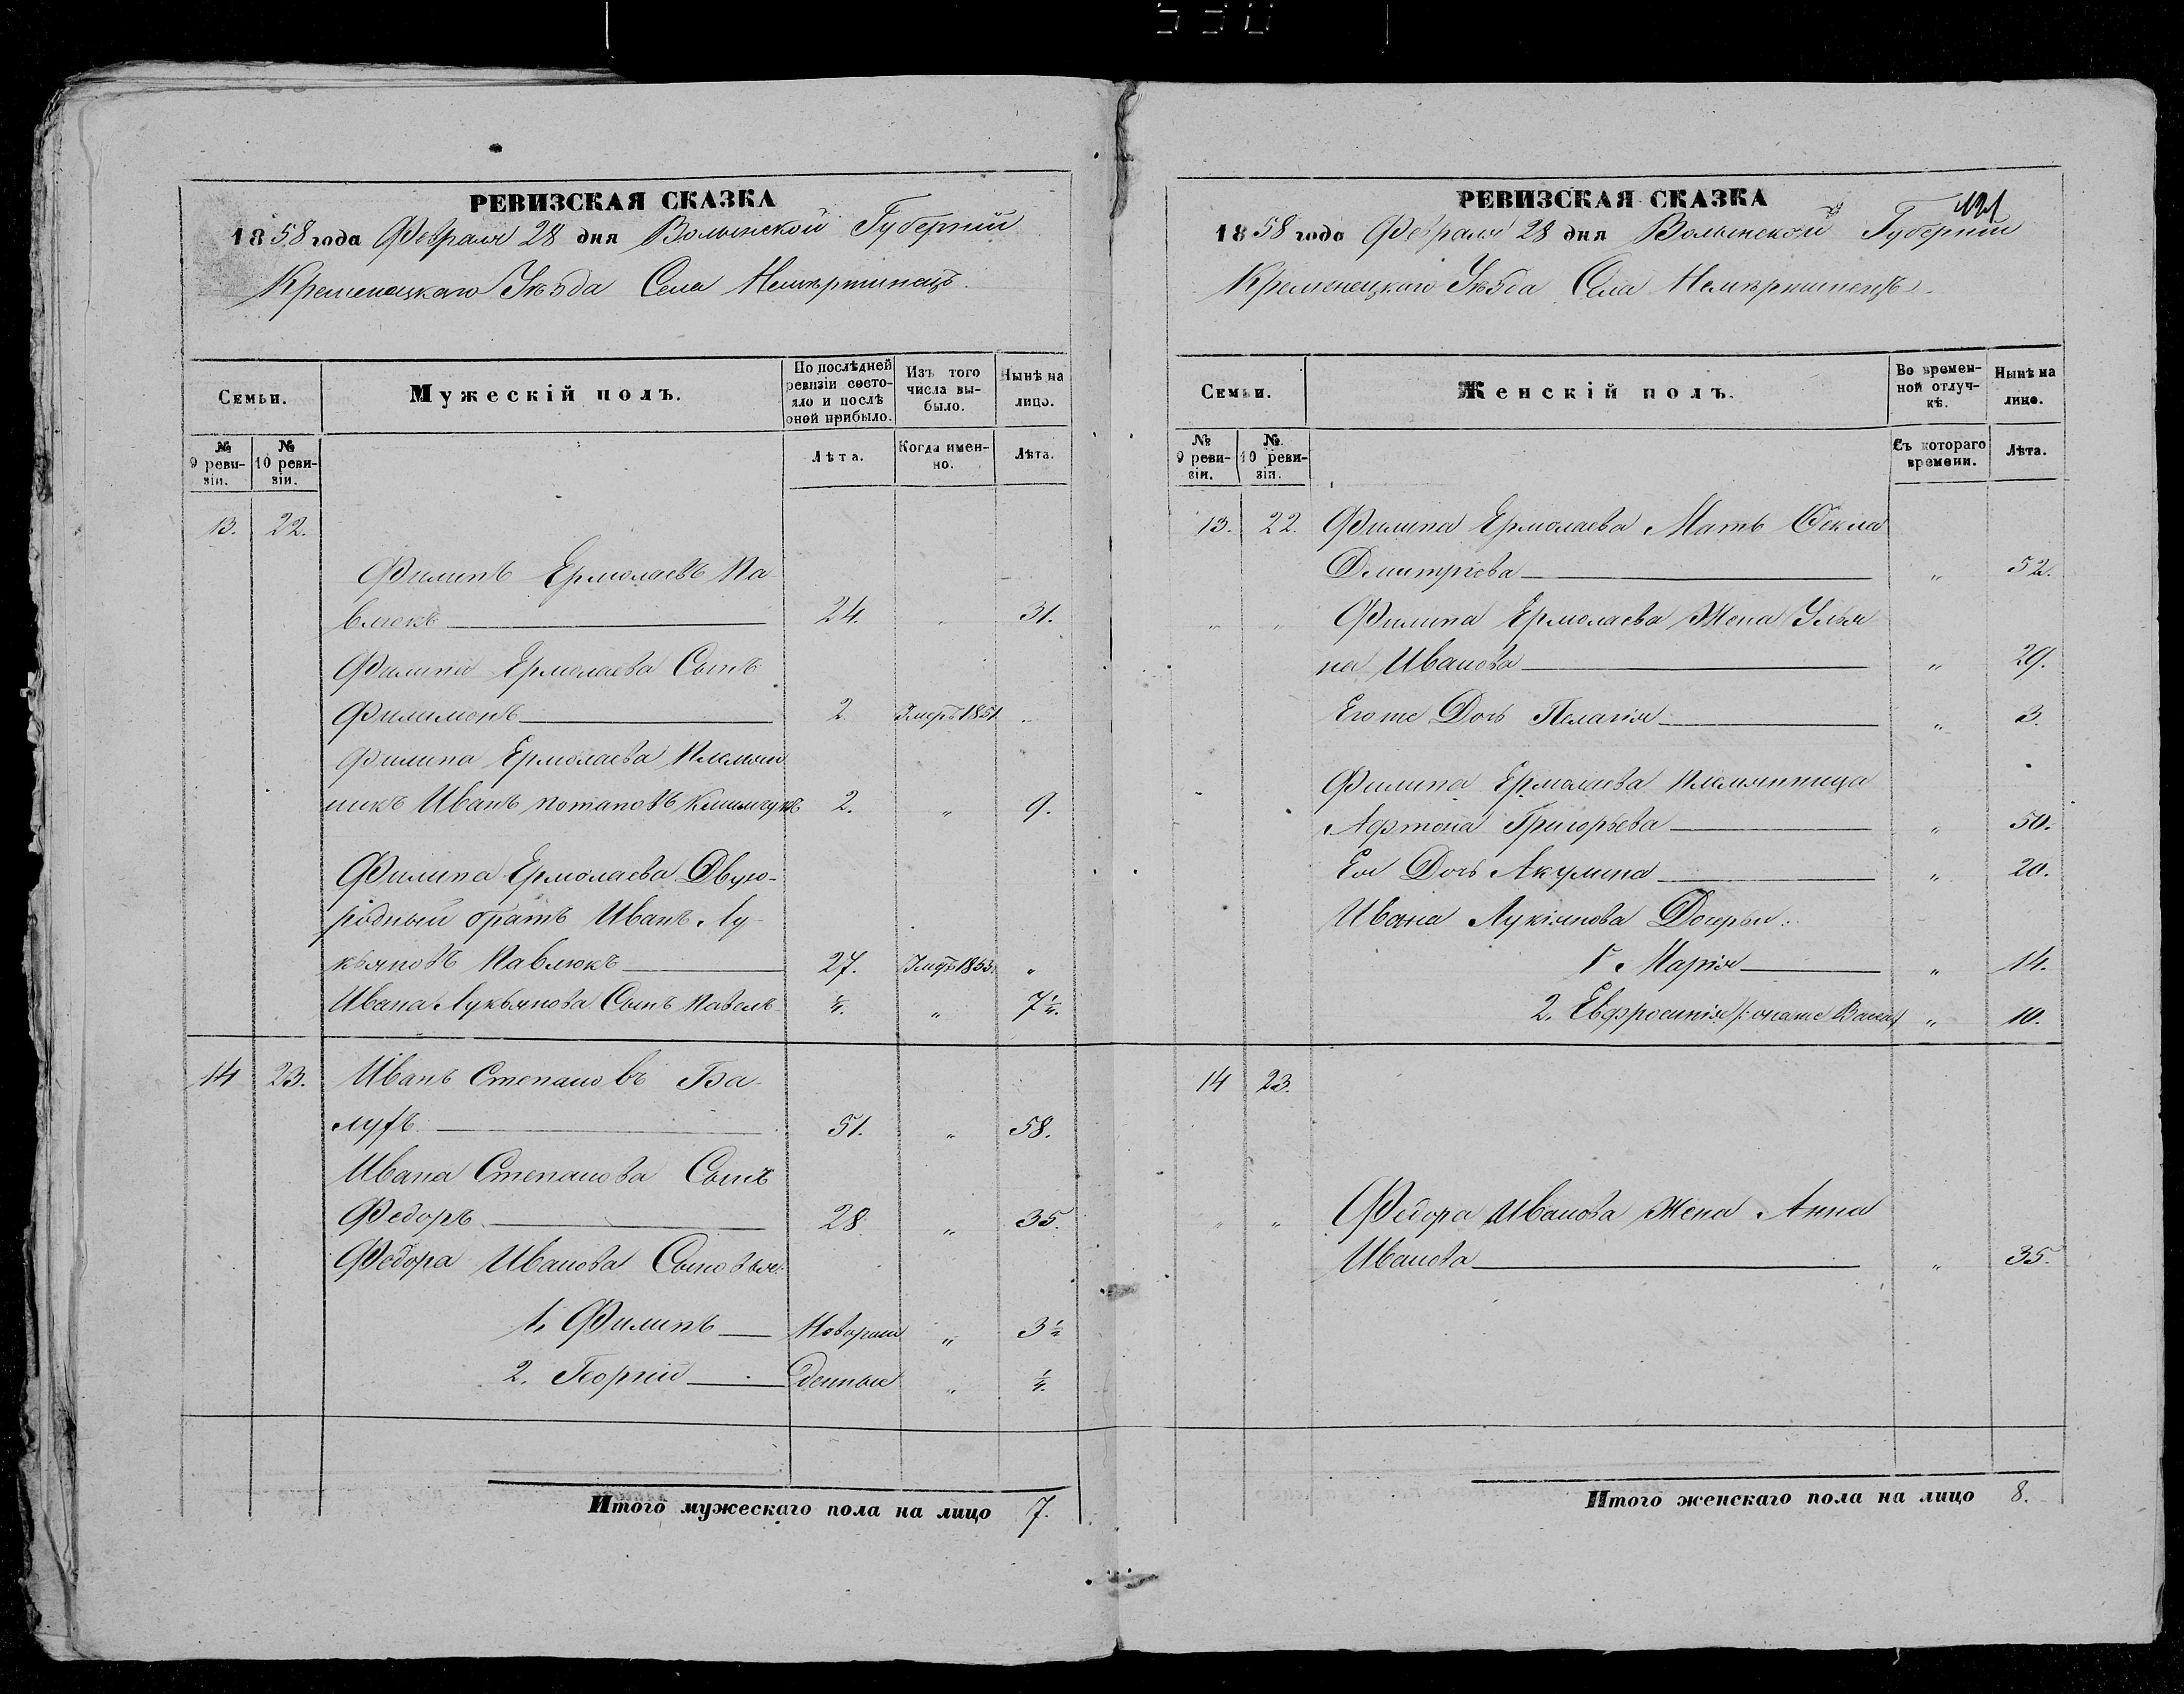 РЕВИЗСКАЯ СКАЗКА
1858 года Февраля 28 дня Волынской Губерніи
Кременецкаго Уѣзда Села
Семьи.
Мужескій полъ.
По послѣдней ревизіи состояло и послѣ оной прибыло.
Изъ того числа выбыло.
Нынѣ на лицо.
№ 9 ревизіи.
№ 10 ревизіи.
Лѣта.
Когда именно.
Лѣта.
13. 22.
Филипъ Ермолаевъ Па-
влюкъ 24. „ 31.
Филипа Ермолаева Сынъ
Филимонъ 2. Умеръ 1851 „
Филипа Ермолаева Племян
никъ Иванъ Потаповъ Климчукъ 2. „ 9.
Филипа Ермолаева Двую-
родный братъ Иванъ Лу-
кьяновъ Павлюкъ 27. 1853. „
Ивана Лукьянова Сынъ Павелъ ¼. „ 7¼.
14 23. Иванъ Степановъ Ба-
51. „ 58.
Ивана Степанова Сынъ
Федоръ 28. „ 35.
Федора Иванова Сыновья:
1, Филипъ Новорож „ 3½
2. Георгій денные „ ¼.
Итого мужескаго пола на лицо 7.
121
РЕВИЗСКАЯ СКАЗКА
1858 года Февраля 28 дня Волынской Губерніи
Кременецкаго Уѣзда Села
Семьи.
Женскій полъ.
Во временной отлучкѣ.
Нынѣ на лицо.
№ 9 ревизіи.
№ 10 ревизіи.
Съ котораго времени.
Лѣта.
13. 22. Филипа Ермолаева Мать Фекла
Дмитріева „ 52.
„ „ Филипа Ермолаева Жена Улья
на Иванова „ 29.
Егоже Дочь Пелагія „ 3.
Филипа Ермолаева Племянница
Григорьева „ 50.
Ея Дочь Акулина „ 20.
Ивана Лукіянова Дочери:
1 Марія „ 14.
2. Евфросинія /: онаже „ 10.
14 23.
„ „ Федора Иванова Жена Анна
Иванова „ 35.
Итого женскаго пола на лицо 8.